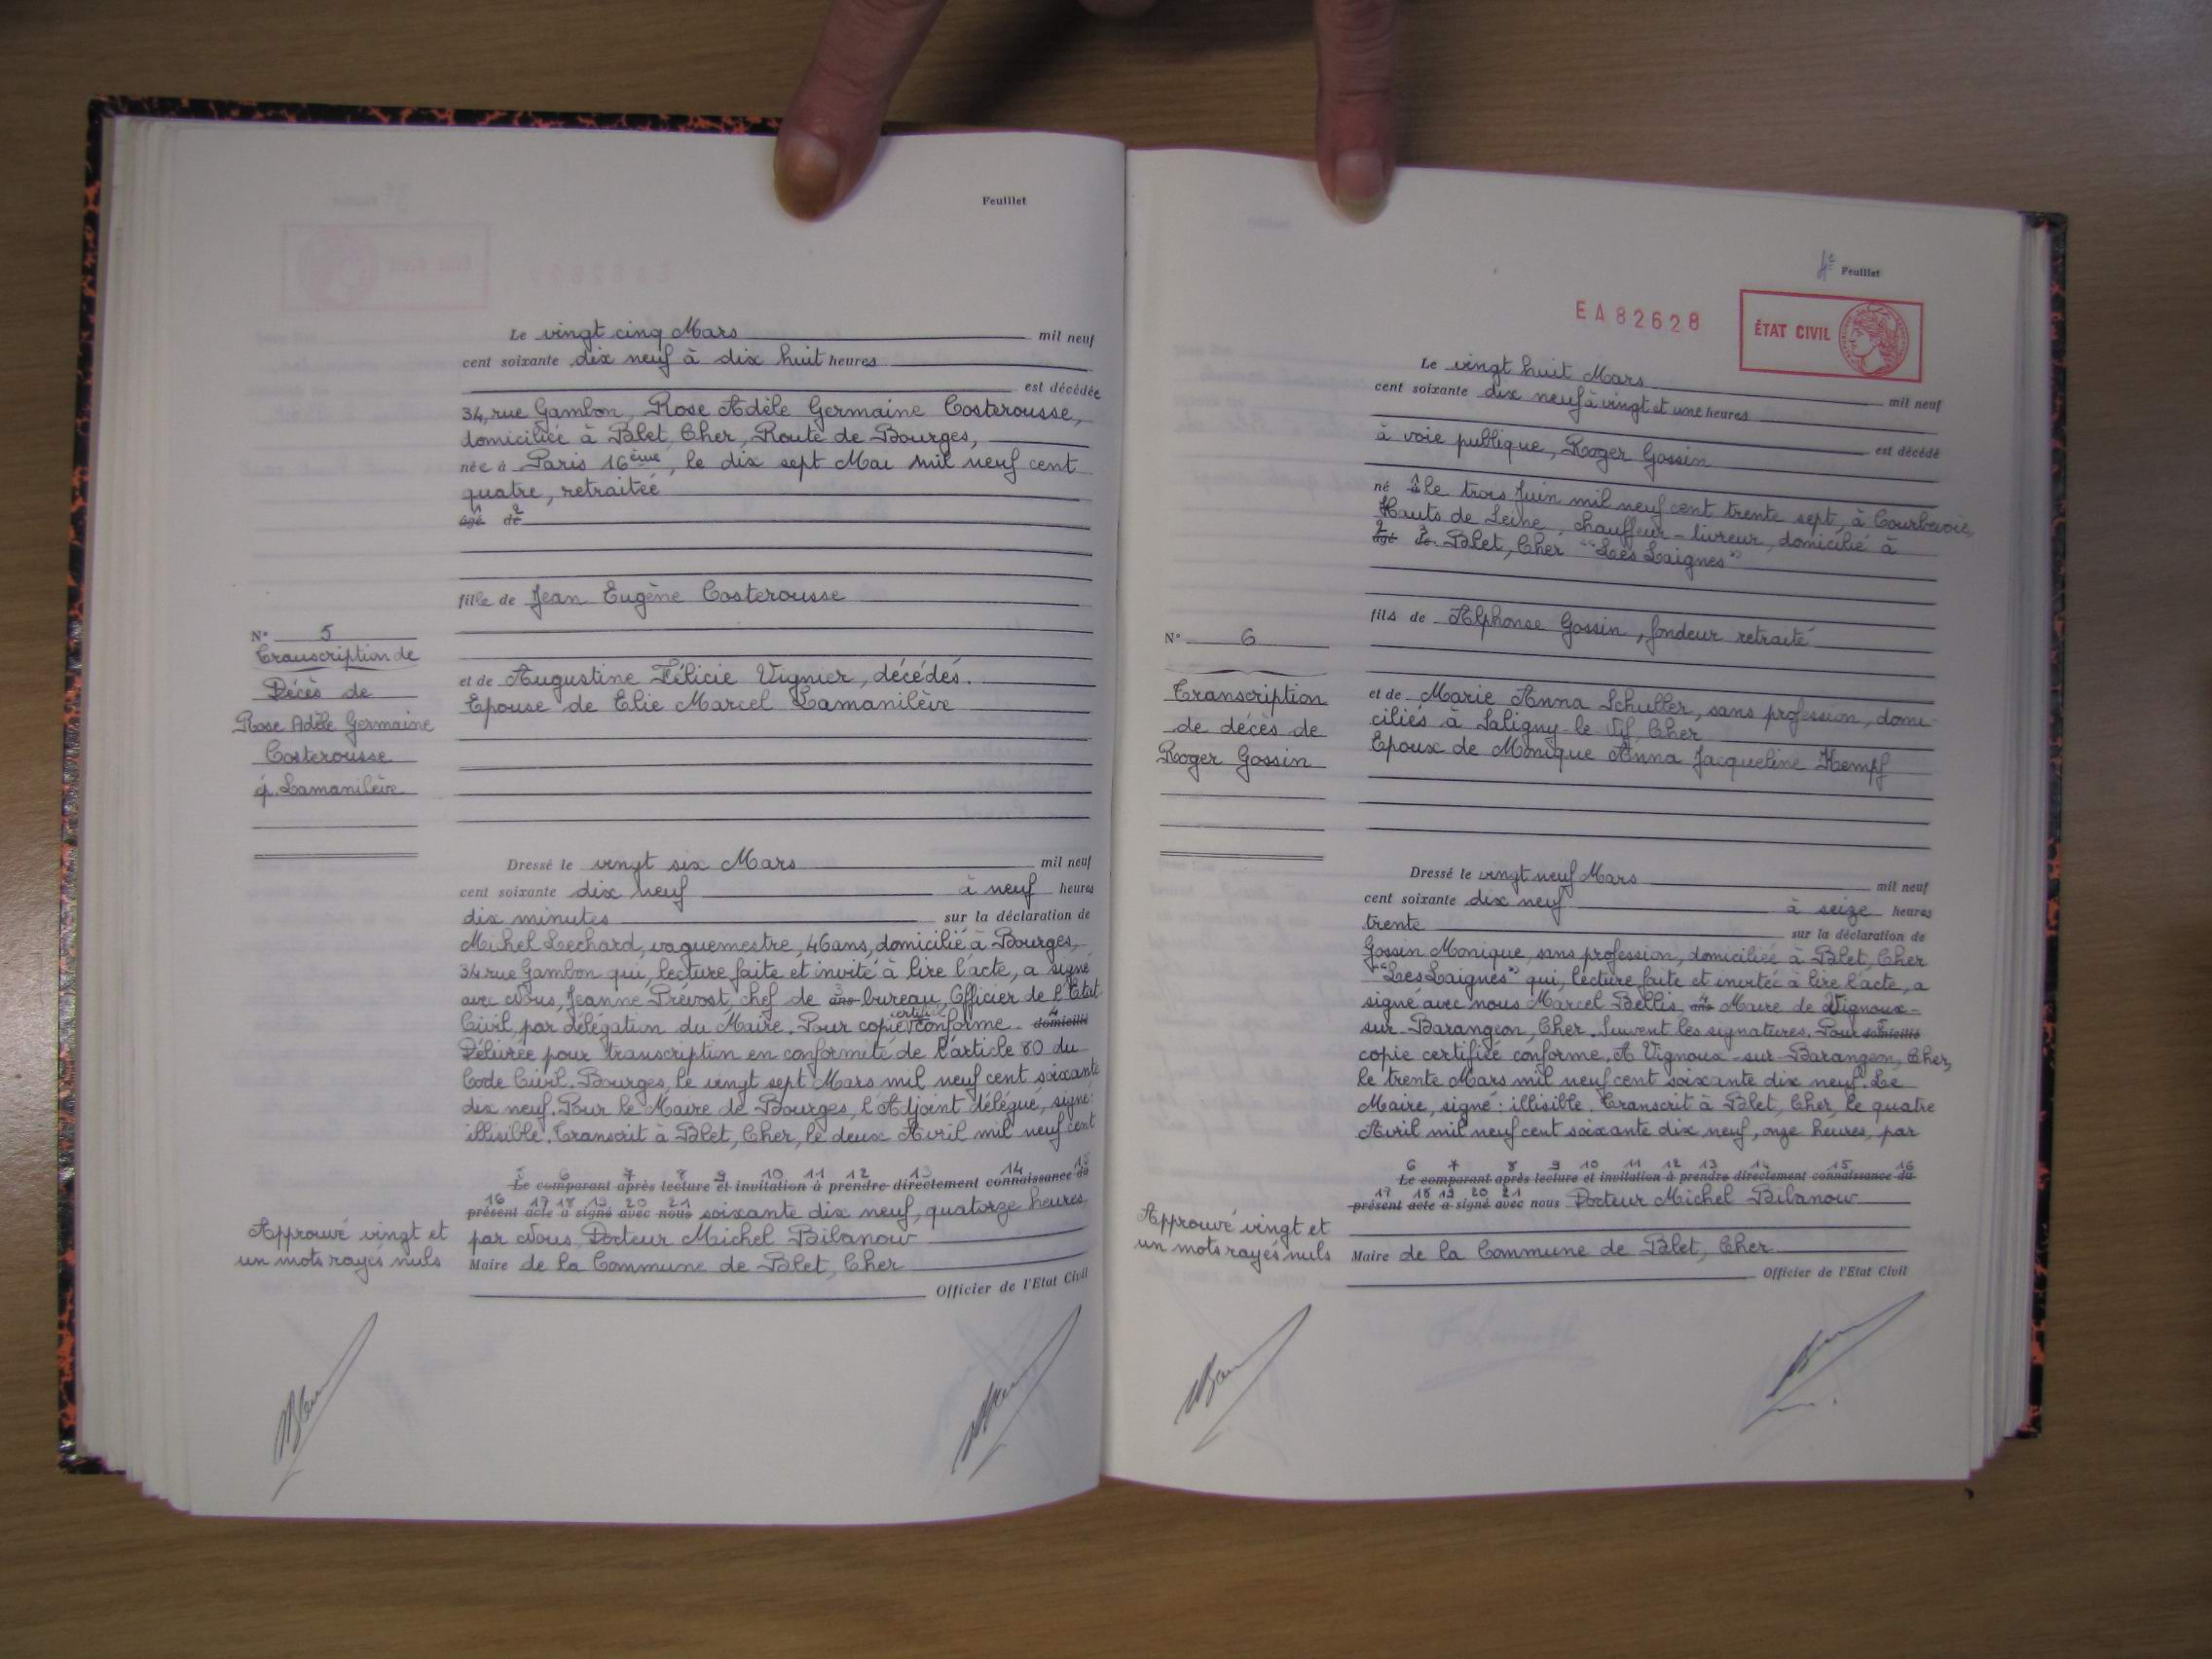 Feuillet
Le vingt cinq Mars mil neuf
cent soixante dix neuf à dix huit heures
est décédée
34, rue Gambon, Rose Adèle Germaine Costerousse,
domiciliée à Blet, Cher, Route de Bourges,
née à Paris 16ème, le dix sept Mai mil neuf cent
quatre, retraitée
1 2
âgé de
fille de Jean Eugène Costerousse
et de Augustine Félicie Vignier, décédés.
Epouse de Elie Marcel Lamanilève
N° 5
Transcription de
Décès de
Rose Adèle Germaine
Costerousse
ép. Lamanilève
Dressé le vingt six Mars mil neuf
cent soixante dix neuf à neuf heures
dix minutes sur la déclaration de
Michel Lechard, vaguemestre, 46 ans, domicilié à Bourges,
34 rue Gambon qui, lecture faite et invité à lire l'acte, a signé
avec Nous, Jeanne Prévost, chef de ans bureau, Officier de l'Etat
Civil, par délégation du Maire. Pour copie certifiée conforme. domicilié
Délivrée pour transcription en conformité de l'article 80 du
Code Civil. Bourges, le vingt sept Mars mil neuf cent soixante
dix neuf. Pour le Maire de Bourges, l'Adjoint délégué, signé:
illisible. Transcrit à Blet, Cher, le deux Avril mil neuf cent
5 6 7 8 9 10 11 12 13 14 15
Le comparant après lecture et invitation à prendre directement connaissance du
16 17 18 19 20 21
présent acte a signé avec nous soixante dix neuf, quatorze heures
par Nous Docteur Michel Bilanow
Maire de la Commune de Blet, Cher
Officier de l'Etat Civil
Approuvé vingt et
un mots rayés nuls
4e Feuillet
EA82628
ÉTAT CIVIL
Le vingt huit Mars mil neuf
cent soixante dix neuf à vingt et une heures
est décédé
à voie publique, Roger Gossin
né à le trois Juin mil neuf cent trente sept, à Courbevoie,
Hauts de Seine, chauffeur-livreur, domicilié à
2 3
âgé de Blet, Cher "Les Laignes"
fils de Alphonse Gossin, fondeur retraité
et de Marie Anna Schuller, sans profession, domi-
ciliés à Saligny-le Vif, Cher
Epoux de Monique Anna Jacqueline Kempf
N° 6
Transcription
de décès de
Roger Gossin
Dressé le vingt neuf Mars mil neuf
cent soixante dix neuf à seize heures
trente sur la déclaration de
Gossin Monique, sans profession, domiciliée à Blet, Cher
"Les Laignes" qui, lecture faite et invitée à lire l'acte, a
signé avec nous Marcel Bellis, ans Maire de Vignoux-
sur-Barangeon, Cher. Suivent les signatures. Pour domicilié
copie certifiée conforme. A Vignoux-sur-Barangeon, Cher,
le trente Mars mil neuf cent soixante dix neuf. Le
Maire, signé: illisible. Transcrit à Blet, Cher, le quatre
Avril mil neuf cent soixante dix neuf, onze heures, par
6 7 8 9 10 11 12 13 14 15 16
Le comparant après lecture et invitation à prendre directement connaissance du
17 18 19 20 21
présent acte a signé avec nous Docteur Michel Bilanow
Maire de la Commune de Blet, Cher
Officier de l'Etat Civil
Approuvé vingt et
un mots rayés nuls